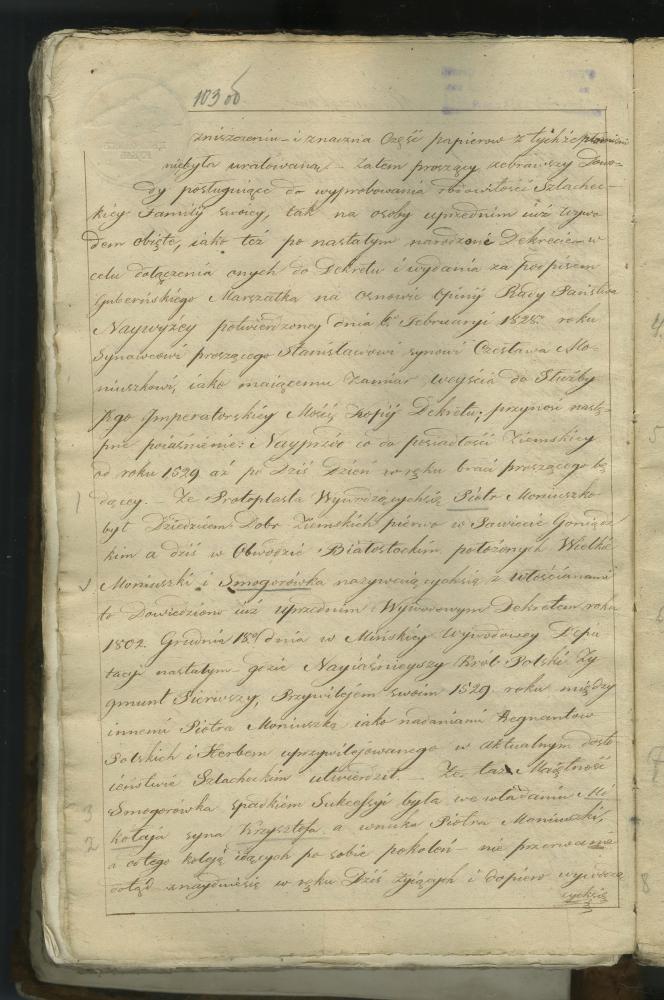 103 об
zniszczeniu – i znaczna Część papierow z tychże płomieni
niebyła uratowaną, – Zatem proszący zebrawszy Dowo-
dy posługuiące do wyprobowania rodowitości Szlachec-
kiéy Familij swoiey, tak na osoby uprzednim iuż wywo
dem obięte, iako też po nastałym narodzone Dekrecie w
celu dołączenia onych do Dekretu i wydania za podpisem
Guberńskiego Marszałka na osnowie Opinij Rady Państwa
Naywyżéy potwierdzoney dnia Februaryi 1825. roku
Synowcowi proszącego Stanisławowi synowi Czesława Mo-
niuszkowi, iako maiącemu zamiar weyścia do Służby
Jego Imperatorskiéy Mości Kopij Dekretu; przynosi nastę-
pne poiaśnienie: i Nayprzód co do posiadłości Ziemskiéy
od roku 1529 aż po Dziś Dzień w ręku braci proszącego bę
dącey. – Że Protoplasta Wywodzącychsię Piotr Moniuszko
1
był Dziedzicem Dobr Ziemskich pierwo w Powiecie Goniądz
kim a dziś w Obwodzie Białostockim położonych Wielkie
Moniuszki i Smogorówka nazywaiącychsię z włościanami
to Dowiedziono iuż uprzednim Wywodowym Dekretem roku
1802. Grudnia 18. dnia w Mińskiéy Wywodowey Depu
tacyi nastałym – gdzie Nayiaśnieyszy Król Polski Zy
gmunt Pierwszy, Przywilejem swoim 1529 roku między
innemi Piotra Moniuszkę iako nadaniami Regnantow
Polskich i Herbem uprzywilejowanego w aktualnym dosto
ieństwie Szlacheckim utwierdził. – Że taż Maiętność
Smogorówka spadkiem Sukcessyi była we władaniu Mi-
3
kołaja syna Krzysztofa a wnuka Piotra Moniuszki,
2
a odtego koleją idących po sobie pokoleń – nie przerwanie
dotąd znayduiesię w ręku Dziś żyiących i dopiero wywodzą
cychsię